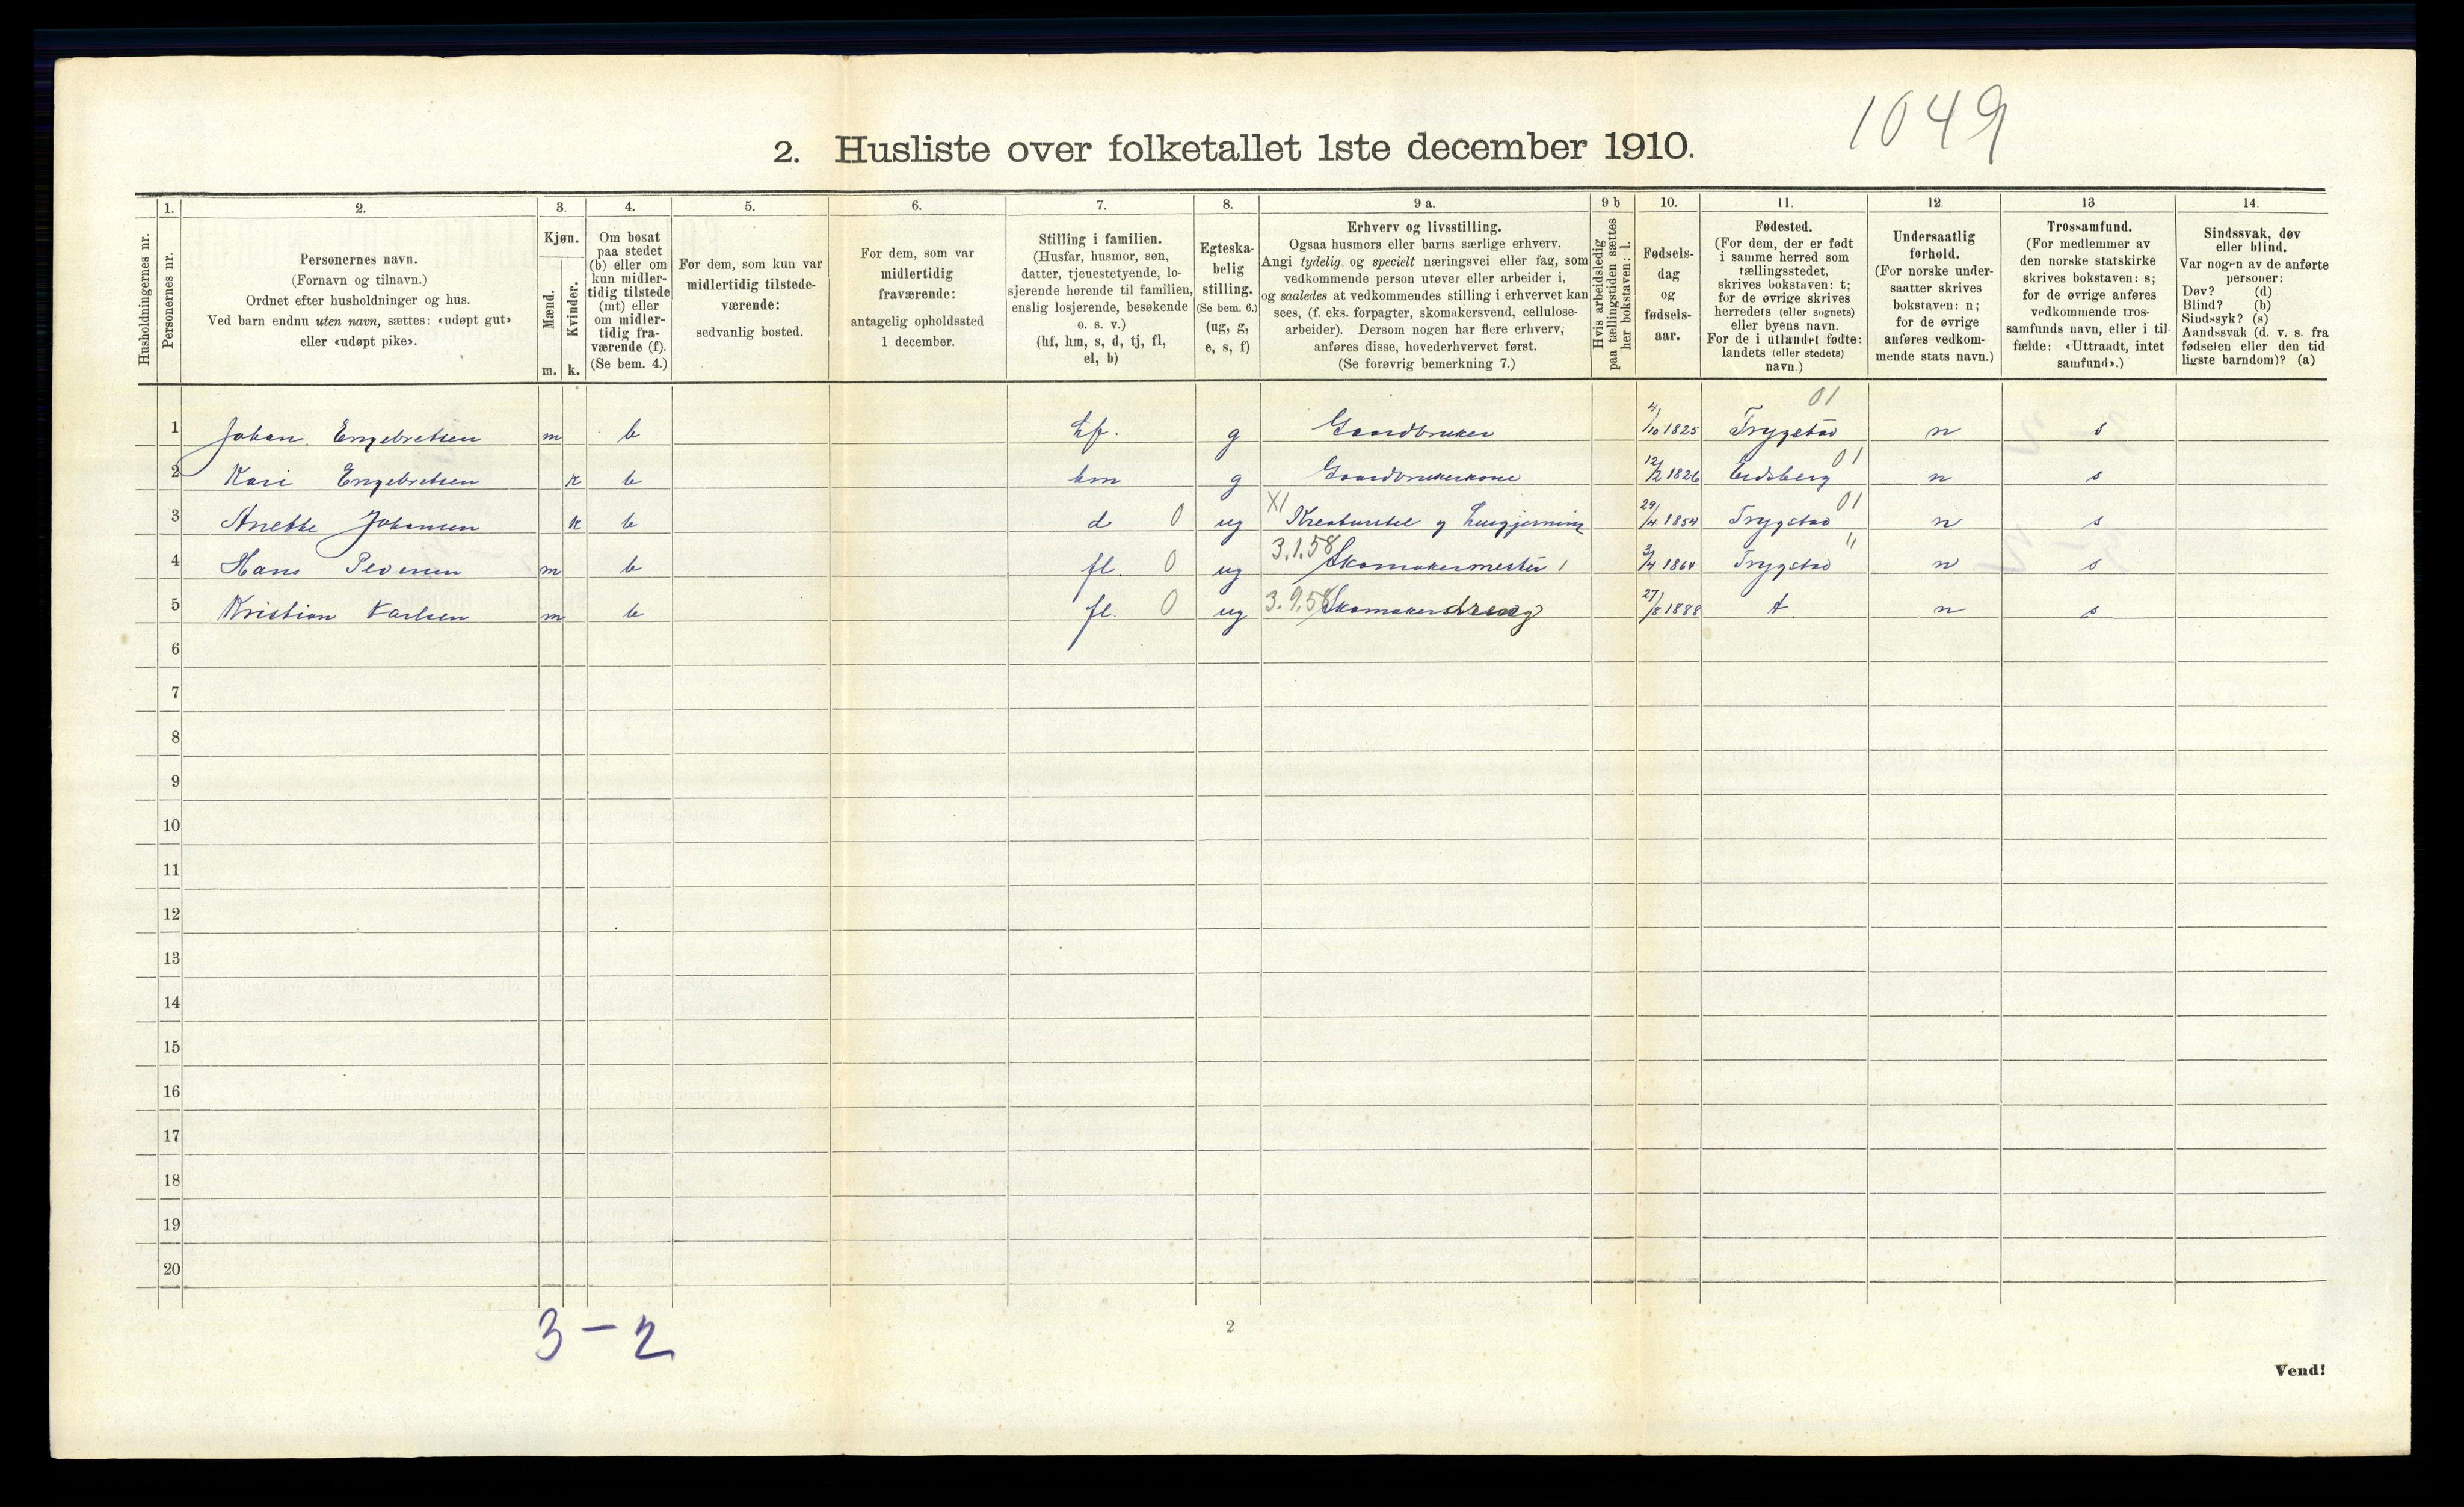 1049
2. Husliste over folketallet 1ste december 1910.
Husholdningernes nr.
1.
Personernes nr.
2.
Personernes navn.
(Fornavn og tilnavn.)
Ordnet efter husholdninger og hus.
Ved barn endnu uten navn, sættes: «udøpt gut»
eller «udøpt pike».
3.
Kjøn.
Mænd.
Kvinder.
m. k.
4.
Om bosat
paa stedet
(b) eller om
kun midler-
tidig tilstede
(mt) eller
om midler-
tidig fra-
værende (f).
(Se bem. 4.)
5.
For dem, som kun var
midlertidig tilstede-
værende:
sedvanlig bosted.
6.
For dem, som var
midlertidig
fraværende:
antagelig opholdssted
1 december.
7.
Stilling i familien.
(Husfar, husmor, søn,
datter, tjenestetyende, lo-
sjerende hørende til familien,
enslig losjerende, besøkende
o. s. v.)
(hf, hm, s, d, tj, fl,
el, b)
8.
Egteska-
belig
stilling.
(Se bem. 6.)
(ug, g,
e, s, f)
9 a.
Erhverv og livsstilling.
Ogsaa husmors eller barns særlige erhverv.
Angi tydelig og specielt næringsvei eller fag, som
vedkommende person utøver eller arbeider i,
og saaledes at vedkommendes stilling i erhvervet kan
sees, (f. eks. forpagter, skomakersvend, cellulose-
arbeider). Dersom nogen har flere erhverv,
anføres disse, hovederhvervet først.
(Se forøvrig bemerkning 7.)
9 b
Hvis arbeidsledig
paa tællingstiden sættes
her bokstaven: l.
10.
Fødsels-
dag
og
fødsels-
aar.
11.
Fødested.
(For dem, der er født
i samme herred som
tællingsstedet,
skrives bokstaven: t;
for de øvrige skrives
herredets (eller sognets)
eller byens navn.
For de i utlandet fødte:
landets (eller stedets)
navn.)
12.
Undersaatlig
forhold.
(For norske under-
saatter skrives
bokstaven: n;
for de øvrige
anføres vedkom-
mende stats navn.)
13
Trossamfund.
(For medlemmer av
den norske statskirke
skrives bokstaven: s;
for de øvrige anføres
vedkommende tros-
samfunds navn, eller i til-
fælde: «Uttraadt, intet
samfund».)
14.
Sindssvak, døv
eller blind.
Var nogen av de anførte
personer:
Døv? (d)
Blind? (b)
Sindssyk? (s)
Aandssvak (d. v. s. fra
fødselen eller den tid
ligste barndom)? (a)
01
1 Johan Engebretsen m b hf. g Gaardbruker 4/10 1825 Trygstad n s
2 Kari Engebretsen k b hm g Gaardbrukerkone 12/2 1826 Eidsberg 01 n s
3 Anette Johansen k b d 0 ug XI Kreaturstel og husgjerning 29/4 1854 Trygstad 01 n s
4 Hans Pedersen m b fl. 0 ug 3.1.58 Skomakermester 3/4 1864 Trygstad " n s
5 Kristian Karlsen m b fl. 0 ug 3.9.58 Skomakerdreng 27/8 1888 t n s
6
7
8
9
10
11
12
13
14
15
16
17
18
19
20
3 - 2
2
Vend!